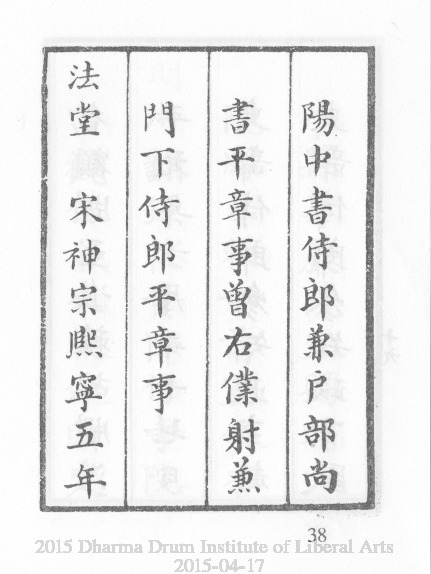 陽中書侍郎兼戶部尚
書平章事曾右僕射兼
門下侍郎平章事
法堂　宋神宗熙寧五年
38
2015 Dharma Drum Institute of Liberal Arts
2015-04-17